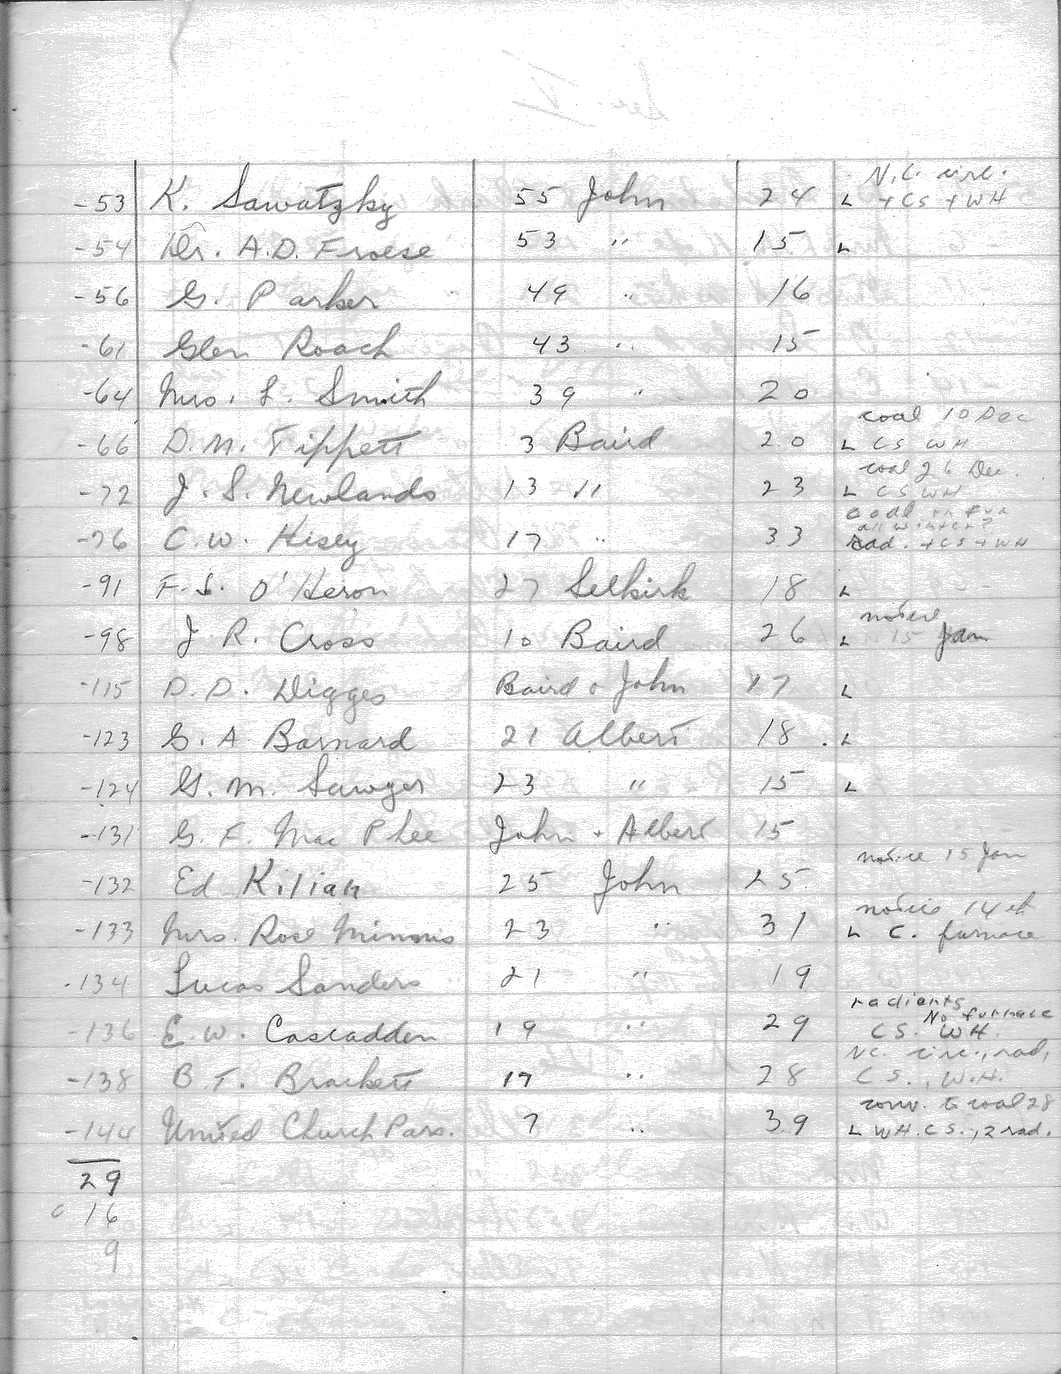 N.C. circ.
-53 K. Sawatzky 55 John 24 L + CS + WH
-54 Dr. A.D. Froese 53 " 15 L
-56 G. Parker 49 " 16
-61 Glen Roach 43 " 15
-64 Mrs. L. Smith 39 " 20
coal 10 Dec
-66 D.M. Tippett 3 Baird 20 L CS WH
coal 26 Dec.
-72 J.S. Newlands 13 " 23 L CS WH
coal in fur
all winter?
-76 C.W. Hisey 17 " 33 rad. + CS + WH
-91 F.S. O'Heron 27 Selkirk 18 L
notice
-98 J R. Cross 10 Baird 26 L 15 Jan
-115 D.D. Digges Baird & John 17 L
-123 G. A Barnard 21 Albert 18 . L
-124 G. M. Sawyer 23 " 15 L
-131 G. F. Mac Phee John + Albert 15
notice 15 Jan
-132 Ed Kilian 25 John 25
notice 14th
-133 Mrs. Rose Minnis 23 " 31 L C. furnace
-134 Lucas Sanders 21 " 19
radiants
No furnace
-136 E.W. Cascadden 19 " 29 CS. WH.
N.C. circ., rad,
-138 B.T. Brackett 17 " 28 C S., W.H.
conv. to coal 28
-144 United Church Pars. 7 " 39 L WH. CS., 2 rad.
29
c 16
9